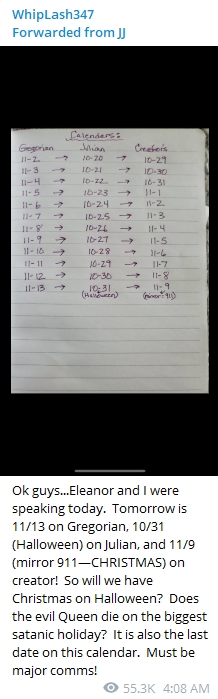 WhipLash347
Forwarded from JJ
Calendars:
Gregorian Julian Creator's
11-2 → 10-20 → 10-29
11-3 → 10-21 → 10-30
11-4 → 10-22 → 10-31
11-5 → 10-23 → 11-1
11-6 → 10-24 → 11-2
11-7 → 10-25 → 11-3
11-8 → 10-26 → 11-4
11-9 → 10-27 → 11-5
11-10 → 10-28 → 11-6
11-11 → 10-29 → 11-7
11-12 → 10-30 → 11-8
11-13 → 10-31 → 11-9
(Halloween) (mirror 911)
Ok guys...Eleanor and I were
speaking today. Tomorrow is
11/13 on Gregorian, 10/31
(Halloween) on Julian, and 11/9
(mirror 911—CHRISTMAS) on
creator! So will we have
Christmas on Halloween? Does
the evil Queen die on the biggest
satanic holiday? It is also the last
date on this calendar. Must be
major comms!
55.3K 4:08 AM